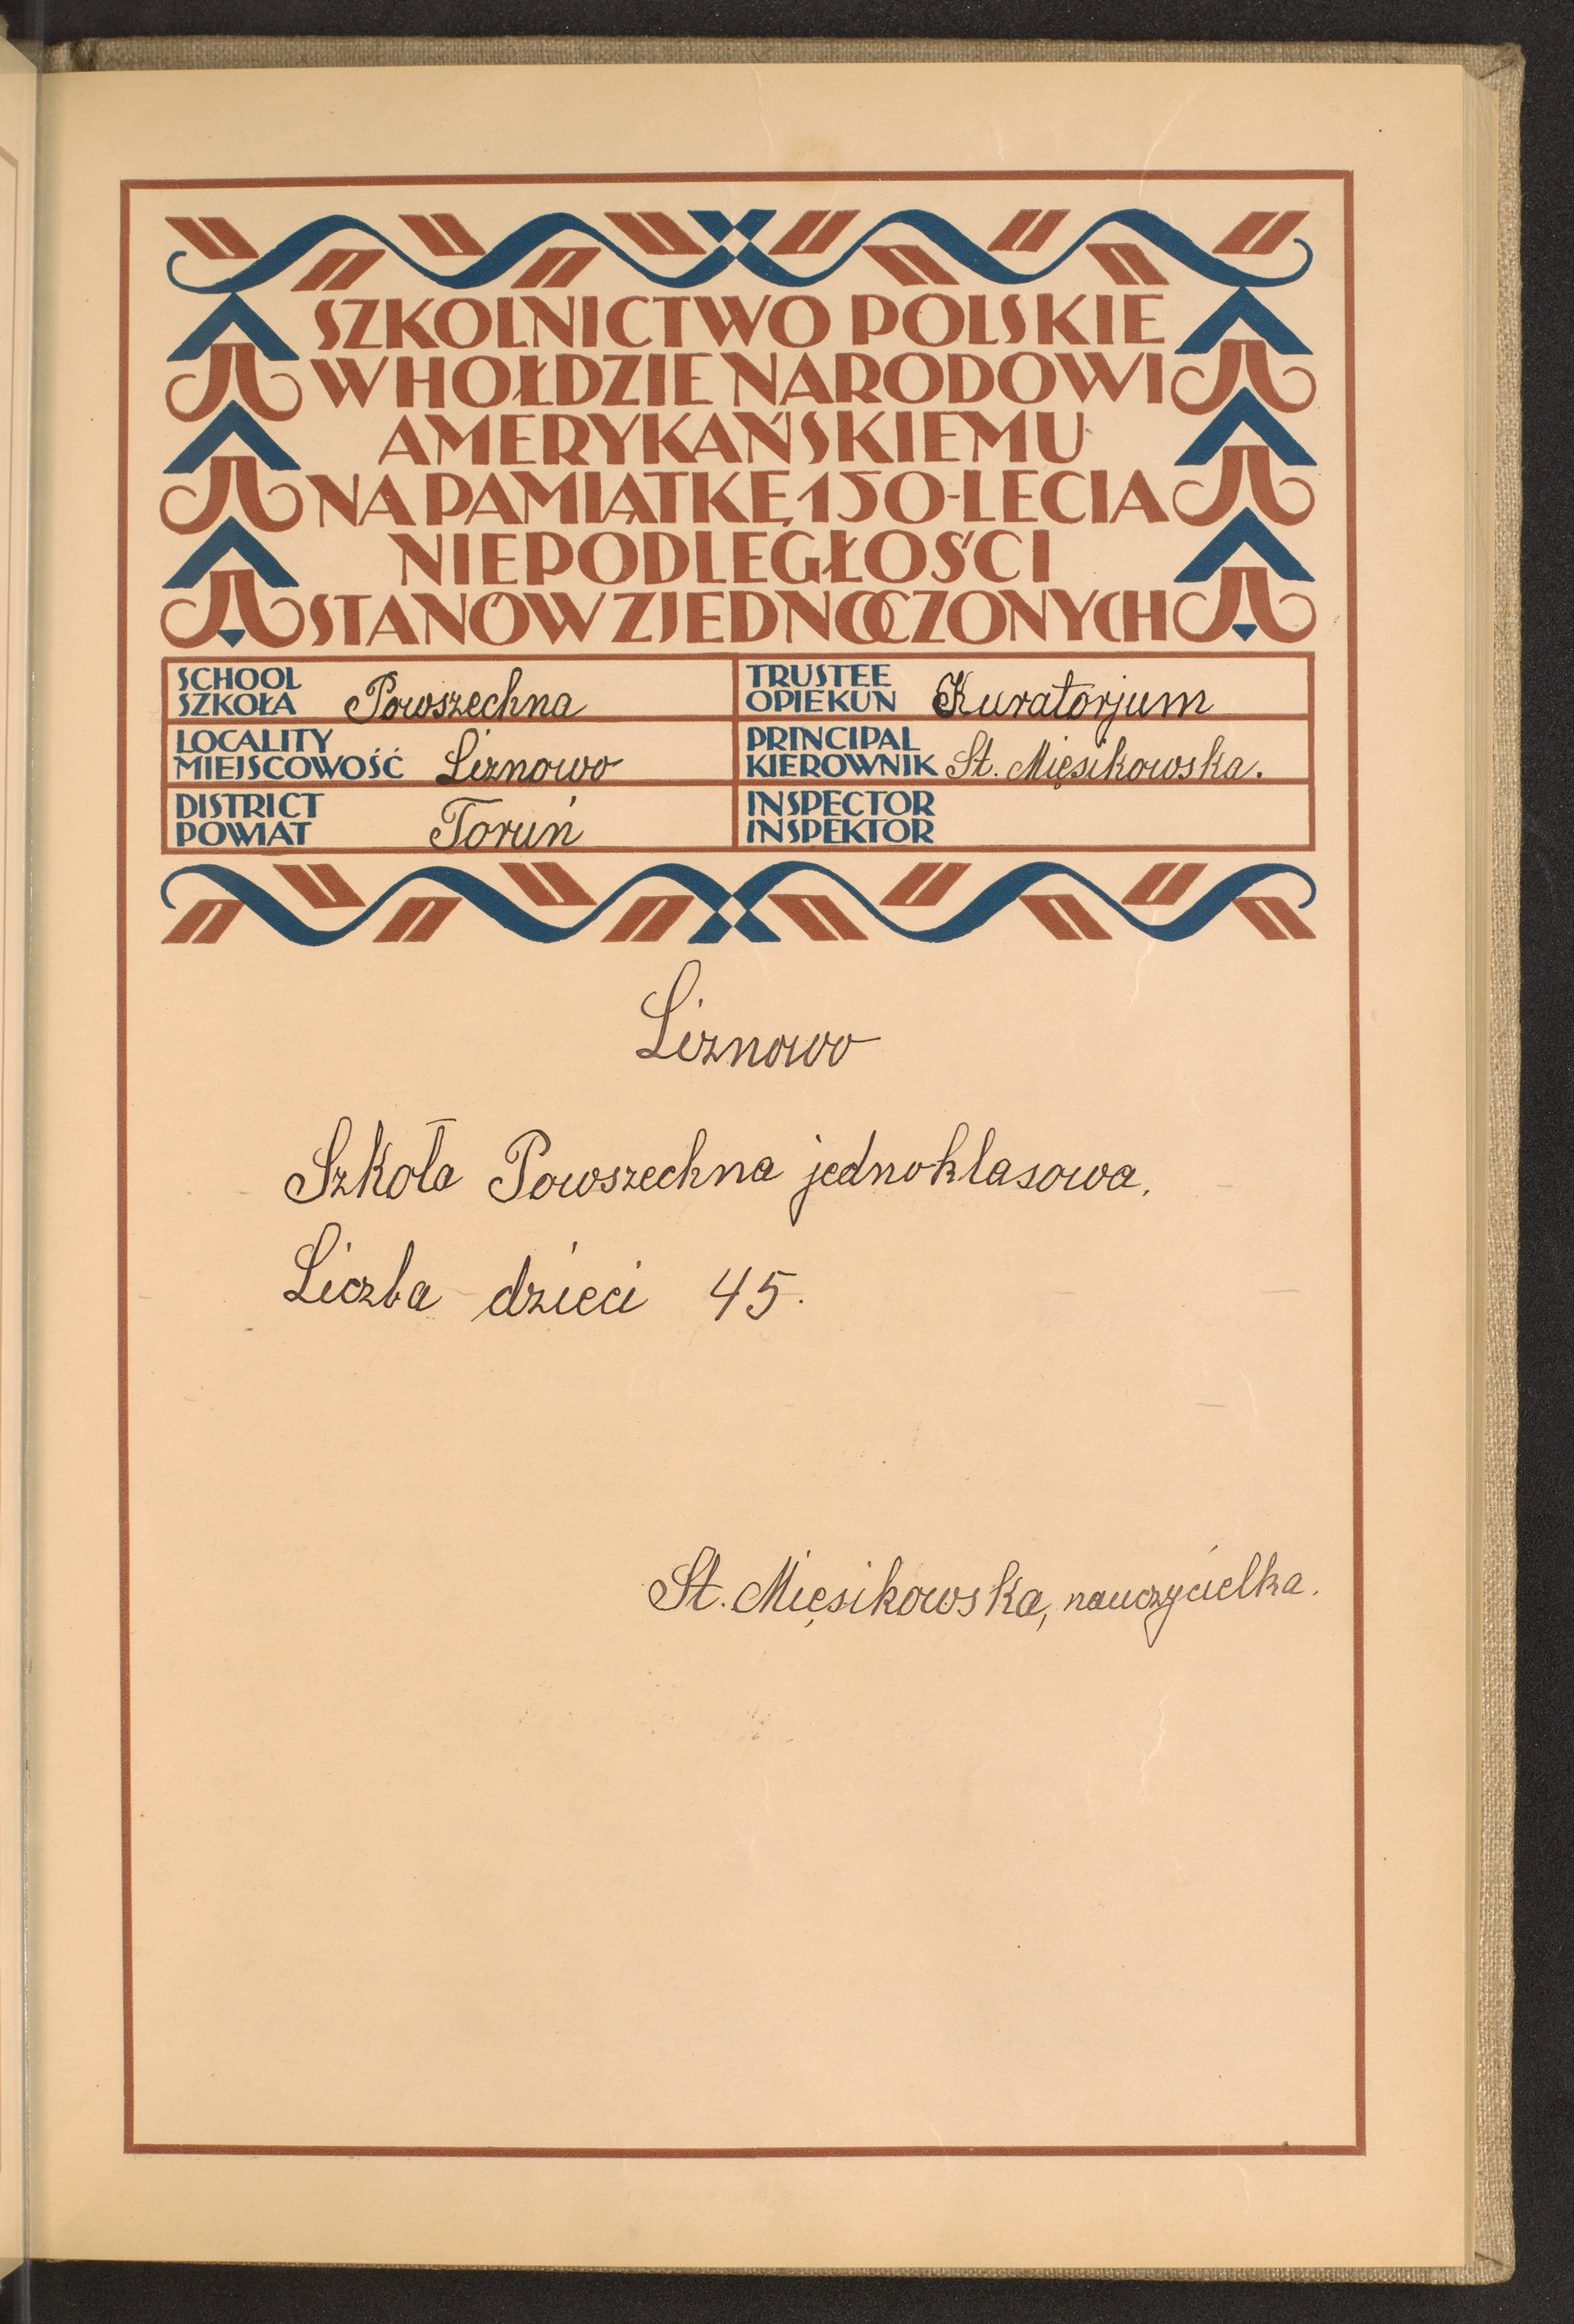 SZKOLNICTWO POLSKIE
W HOŁDZIE NARODOWI
AMERYKAŃSKIEMU
NA PAMIĄTKĘ 150-LECIA
NIEPODLEGŁOŚCI
STANÓW ZJEDNOCZONYCH
SCHOOL
SZKOŁA Powszechna
TRUSTEE
OPIEKUN Kuratorjum
LOCALITY
MIEJSCOWOŚĆ Liznowo
PRINCIPAL
KIEROWNIK St. Mięsikowska.
DISTRICT
POWIAT Toruń
INSPECTOR
INSPEKTOR
Liznowo
Szkoła Powszechna jednoklasowa.
Liczba dzieci 45.
St. Mięsikowska, nauczycielka.